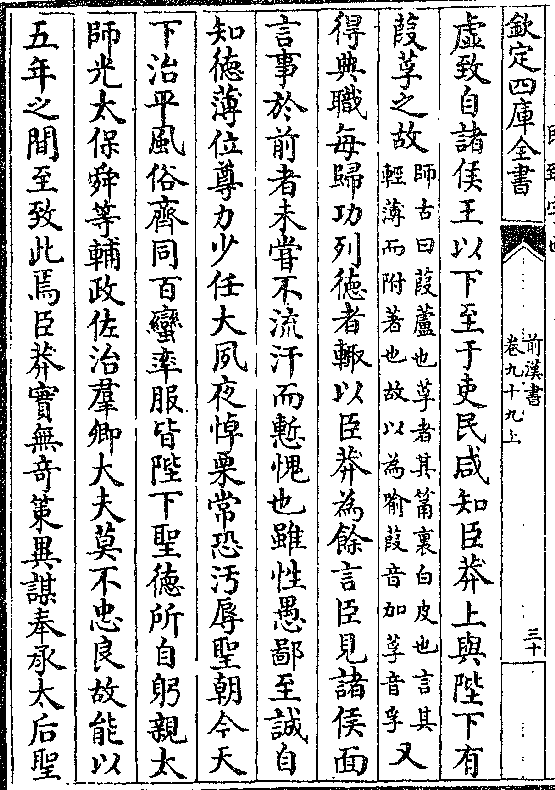 欽定四庫全書
前漢書
卷九十九上
三十
虛致自諸侯王以下至于吏民咸知臣莽上與陛下有
葭莩之故師古曰葭蘆也莩者其筩裏白皮也言其
輕薄而附著也故以為喻葭音加莩音孚又
得典職每歸功列徳者輙以臣莽為餘言臣見諸侯面
言事於前者未嘗不流汗而慙愧也雖性愚鄙至誠自
知徳薄位尊力少任大夙夜悼栗常恐汚辱聖朝今天
下治平風俗齊同百蠻率服皆陛下聖徳所自躬親太
師光太保舜等輔政佐治羣卿大夫莫不忠良故能以
五年之間至致此焉臣莽實無奇策異謀奉承太后聖